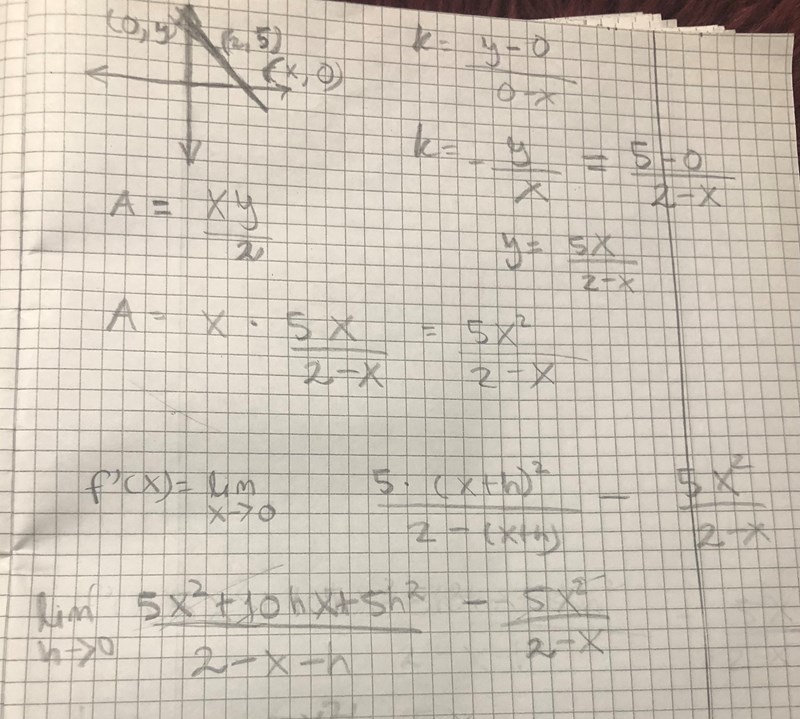 (0, y) (2, 5) (x, 0)
k = y-0 / 0-x
k = - y/x = 5-0 / 2-x
A = xy / 2
y = 5x / 2-x
A = x · 5x / 2-x = 5x² / 2-x
f'(x) = lim x→0 5·(x+h)² / 2-(x+h) - 5x² / 2-x
lim h→0 5x²+10hx+5h² / 2-x-h - 5x² / 2-x